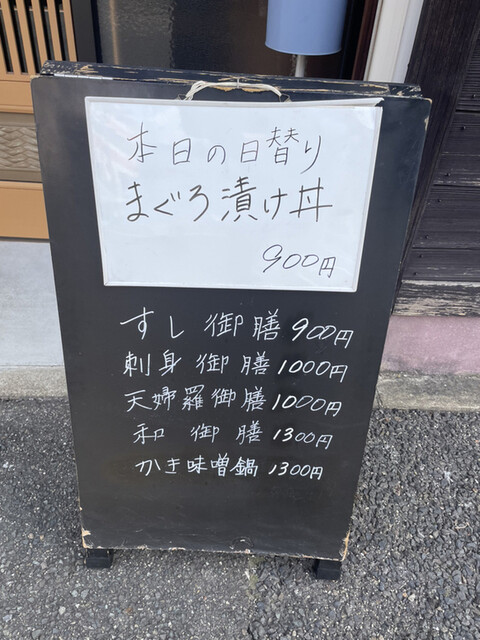 本日の日替り
まぐろ漬け丼
900円
すし御膳 900円
刺身御膳 1000円
天婦羅御膳 1000円
和御膳 1300円
かき味噌鍋 1300円